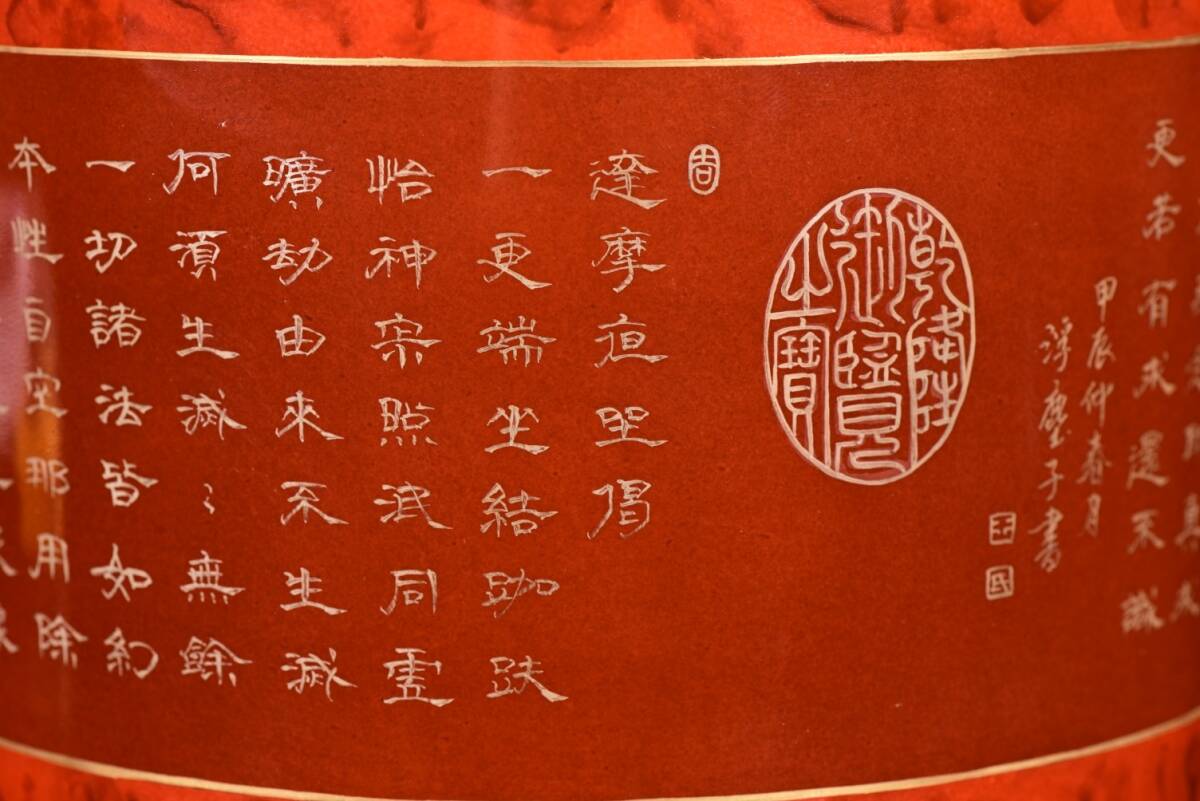 更若有求還不識
甲辰仲春月
浮塵子書
乾隆
御覽
之寶
達摩夜坐偈
一更端坐結跏趺
怡神寂照泯同虛
曠劫由來不生滅
何須生滅〻無餘
一切諸法皆如幻
本性自空那用除